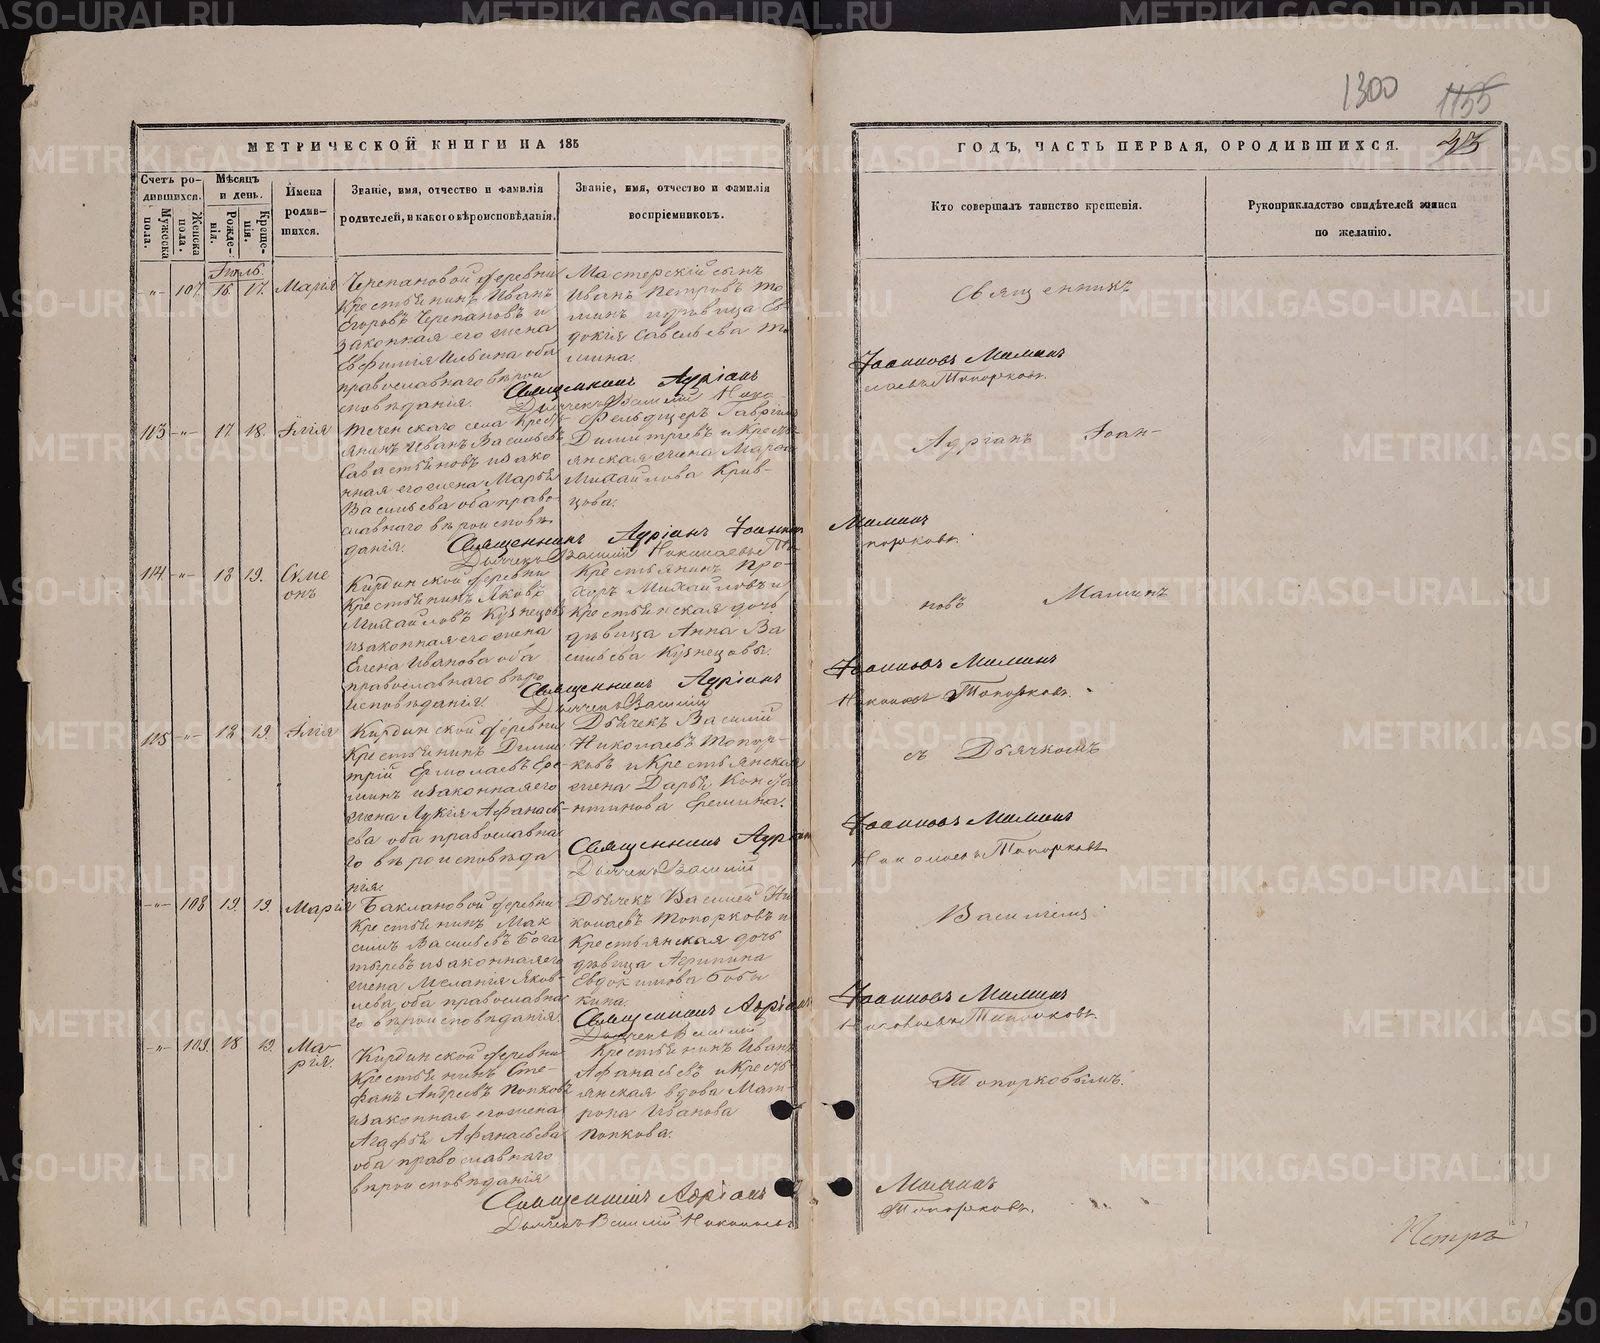 1300 1155
МЕТРИЧЕСКОЙ КНИГИ НА 185
ГОДЪ, ЧАСТЬ ПЕРВАЯ, О РОДИВШИХСЯ.
Счетъ ро-
дившихся.
Мужеска пола.
Женска пола.
Мѣсяцъ
и день.
Рожде-
нія.
Креще-
нія.
Имена
родив-
шихся.
Званіе, имя, отчество и фамилія
родителей, и какого вѣроисповѣданія.
Званіе, имя, отчество и фамилія
воспріемниковъ.
Кто совершалъ таинство крещенія.
Рукоприкладство свидѣтелей записи
по желанію.
Іюль.
-"- 107. 16. 17. Марія
Черепановой деревни
Крестьянинъ Иванъ
Егоровъ Черепановъ и
законная его жена
Ефимія Ильина оба
православнаго вѣрои
сповѣданія.
Мастерскій сынъ
Иванъ Петровъ То
минъ и дѣвица Ев
докія Савельева То
мина.
Священникъ Адріанъ
Іоанновъ Маминъ
Дьячекъ Василій Нико
лаевъ Топорковъ.
113 -"- 17 18. Илія
Теченскаго села Кресть
янинъ Иванъ Васильевъ
Савастьяновъ и зако
нная его жена Марья
Васильева оба право-
славнаго вѣроисповѣ
данія.
Фельдшеръ Гавріилъ
Димитріевъ и Кресть-
янская жена Марѳа
Михайлова Крив-
цова.
Священникъ Адріанъ Іоанновъ
Маминъ
Дьячекъ Василій Николаевъ То
порковъ.
114 -"- 18 19. Симе
онъ
Кирдинской деревни
Крестьянинъ Яковъ
Михайловъ Кузнецовъ
и законная его жена
Елена Иванова оба
православнаго вѣро
исповѣданія.
Крестьянинъ Про-
хоръ Михайловъ и
Крестьянская дочь
дѣвица Анна Ва
сильева Кузнецовы.
Священникъ Адріанъ
Іоанновъ Маминъ
Дьячекъ Василій
Николаевъ Топорковъ.
115 -"- 18 19. Илія
Кирдинской деревни
Крестьянинъ Дими
трій Ермолаевъ Ере-
минъ и законная его
жена Лукія Афанась-
ева оба православна
го вѣроисповѣда
нія.
Дьячекъ Василій
Николаевъ Топор-
ковъ и Крестьянская
жена Дарья Конста
нтинова Еремина.
Священникъ Адріанъ
Іоанновъ Маминъ
Дьячекъ Василій
Николаевъ Топорковъ
-"- 108 19. 19. Марія
Баклановой деревни
Крестьянинъ Мак
симъ Васильевъ Бога
тыревъ и законная его
жена Меланія Яков-
лева, оба православна
го вѣроисповѣданія.
Дьячекъ Василій Ни
колаевъ Топорковъ и
Крестьянская дочь
дѣвица Агрипина
Евдокимова Бобы
кина.
Священникъ Адріанъ
Іоанновъ Маминъ
Дьячекъ Василій
Николаевъ Топорковъ.
-"- 109. 18 19. Ма-
рія.
Кирдинской деревни
Крестьянинъ Сте-
фанъ Андреевъ Попковъ
и законная его жена
Агафья Афанасьева
оба православнаго
вѣроисповѣданія
Крестьянинъ Иванъ
Афанасьевъ и Кресть
янская вдова Мат-
рона Иванова
Попкова.
Священникъ Адріанъ
Маминъ
Дьячекъ Василій Николаевъ
Топорковъ.
Священникъ
Адріанъ Іоан-
новъ Маминъ
съ Дьячкомъ
Василіемъ
Топорковымъ.
METRIKI.GASO-URAL.RU